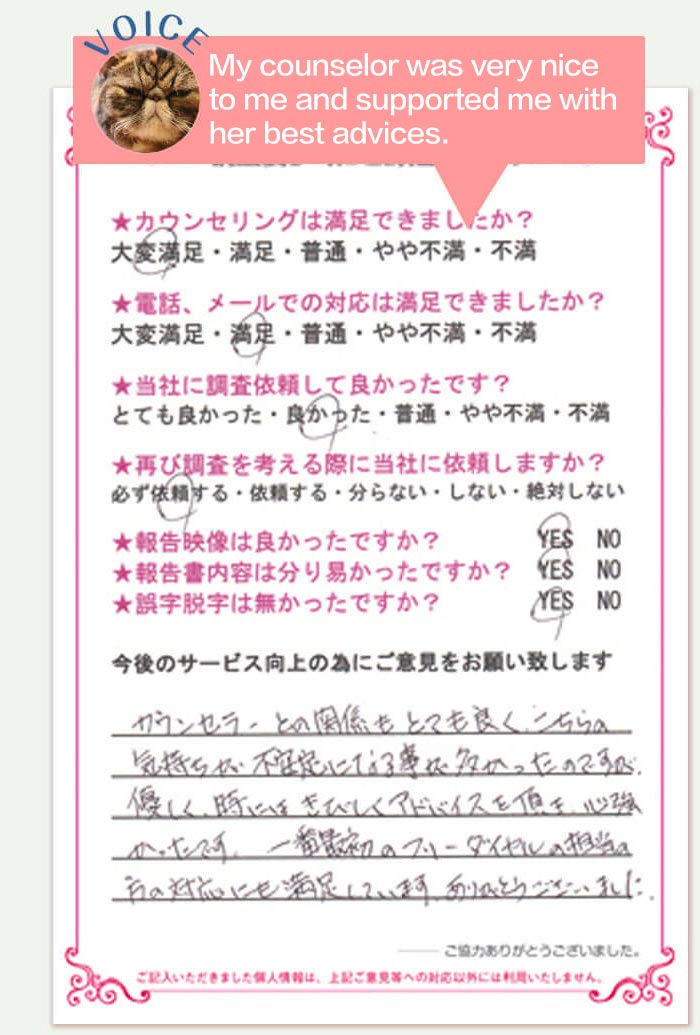 VOICE
My counselor was very nice
to me and supported me with
her best advices.
★カウンセリングは満足できましたか？
大変満足・満足・普通・やや不満・不満
★電話、メールでの対応は満足できましたか？
大変満足・満足・普通・やや不満・不満
★当社に調査依頼して良かったです？
とても良かった・良かった・普通・やや不満・不満
★再び調査を考える際に当社に依頼しますか？
必ず依頼する・依頼する・分らない・しない・絶対しない
★報告映像は良かったですか？ YES NO
★報告書内容は分り易かったですか？ YES NO
★誤字脱字は無かったですか？ YES NO
今後のサービス向上の為にご意見をお願い致します
カウンセラーとの関係もとても良く、こちらの
気持ちが不安定になる事が多かったのですが、
優しく、時にはきびしくアドバイスを頂き、心強
かったです。一番最初のフリーダイヤルの担当の
方の対応にも満足しています。ありがとうございました。
ご協力ありがとうございました。
ご記入いただきました個人情報は、上記ご意見等への対応以外には利用いたしません。